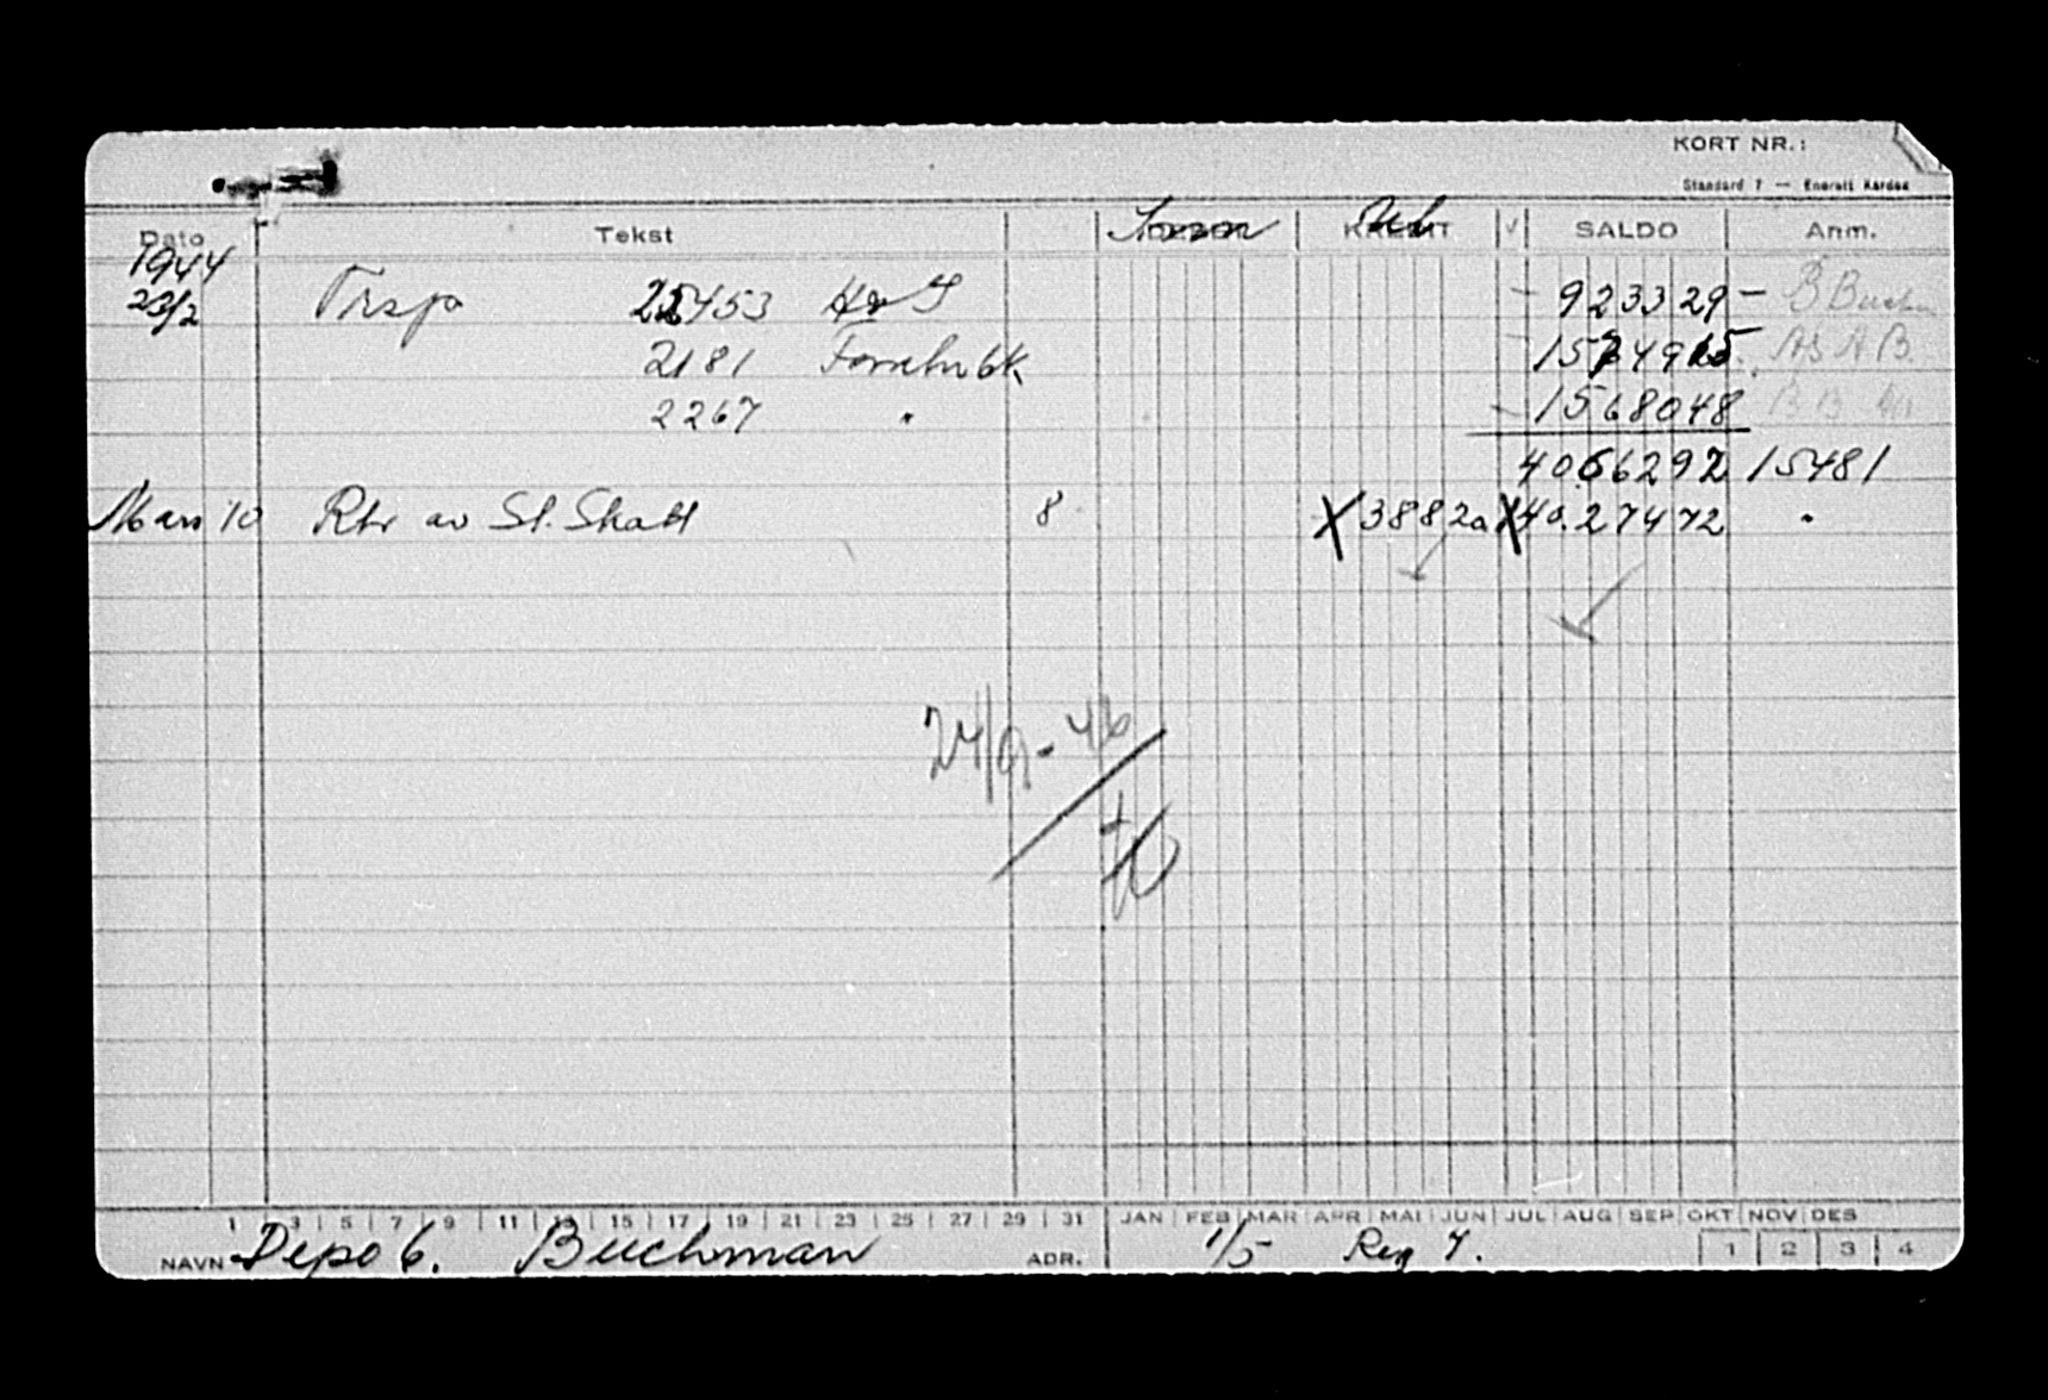 KORT NR.:
Standard 7 — Enersti Kardex
Dato Tekst KREDIT √ SALDO Anm.
1944
23/2 22453 923329 B Buchm
2181 A/S A. B.
2267 " 1568048
4066292 15481
Mars 10 Rtr av St. Skatt 8 X 38820 X 40.27472 "
24/9-46
1 3 5 7 9 11 13 15 17 19 21 23 25 27 29 31 JAN FEB MAR APR MAI JUN JUL AUG SEP OKT NOV DES
NAVN Depo 6. Buchman ADR. 1/5 Reg 7. 1 2 3 4